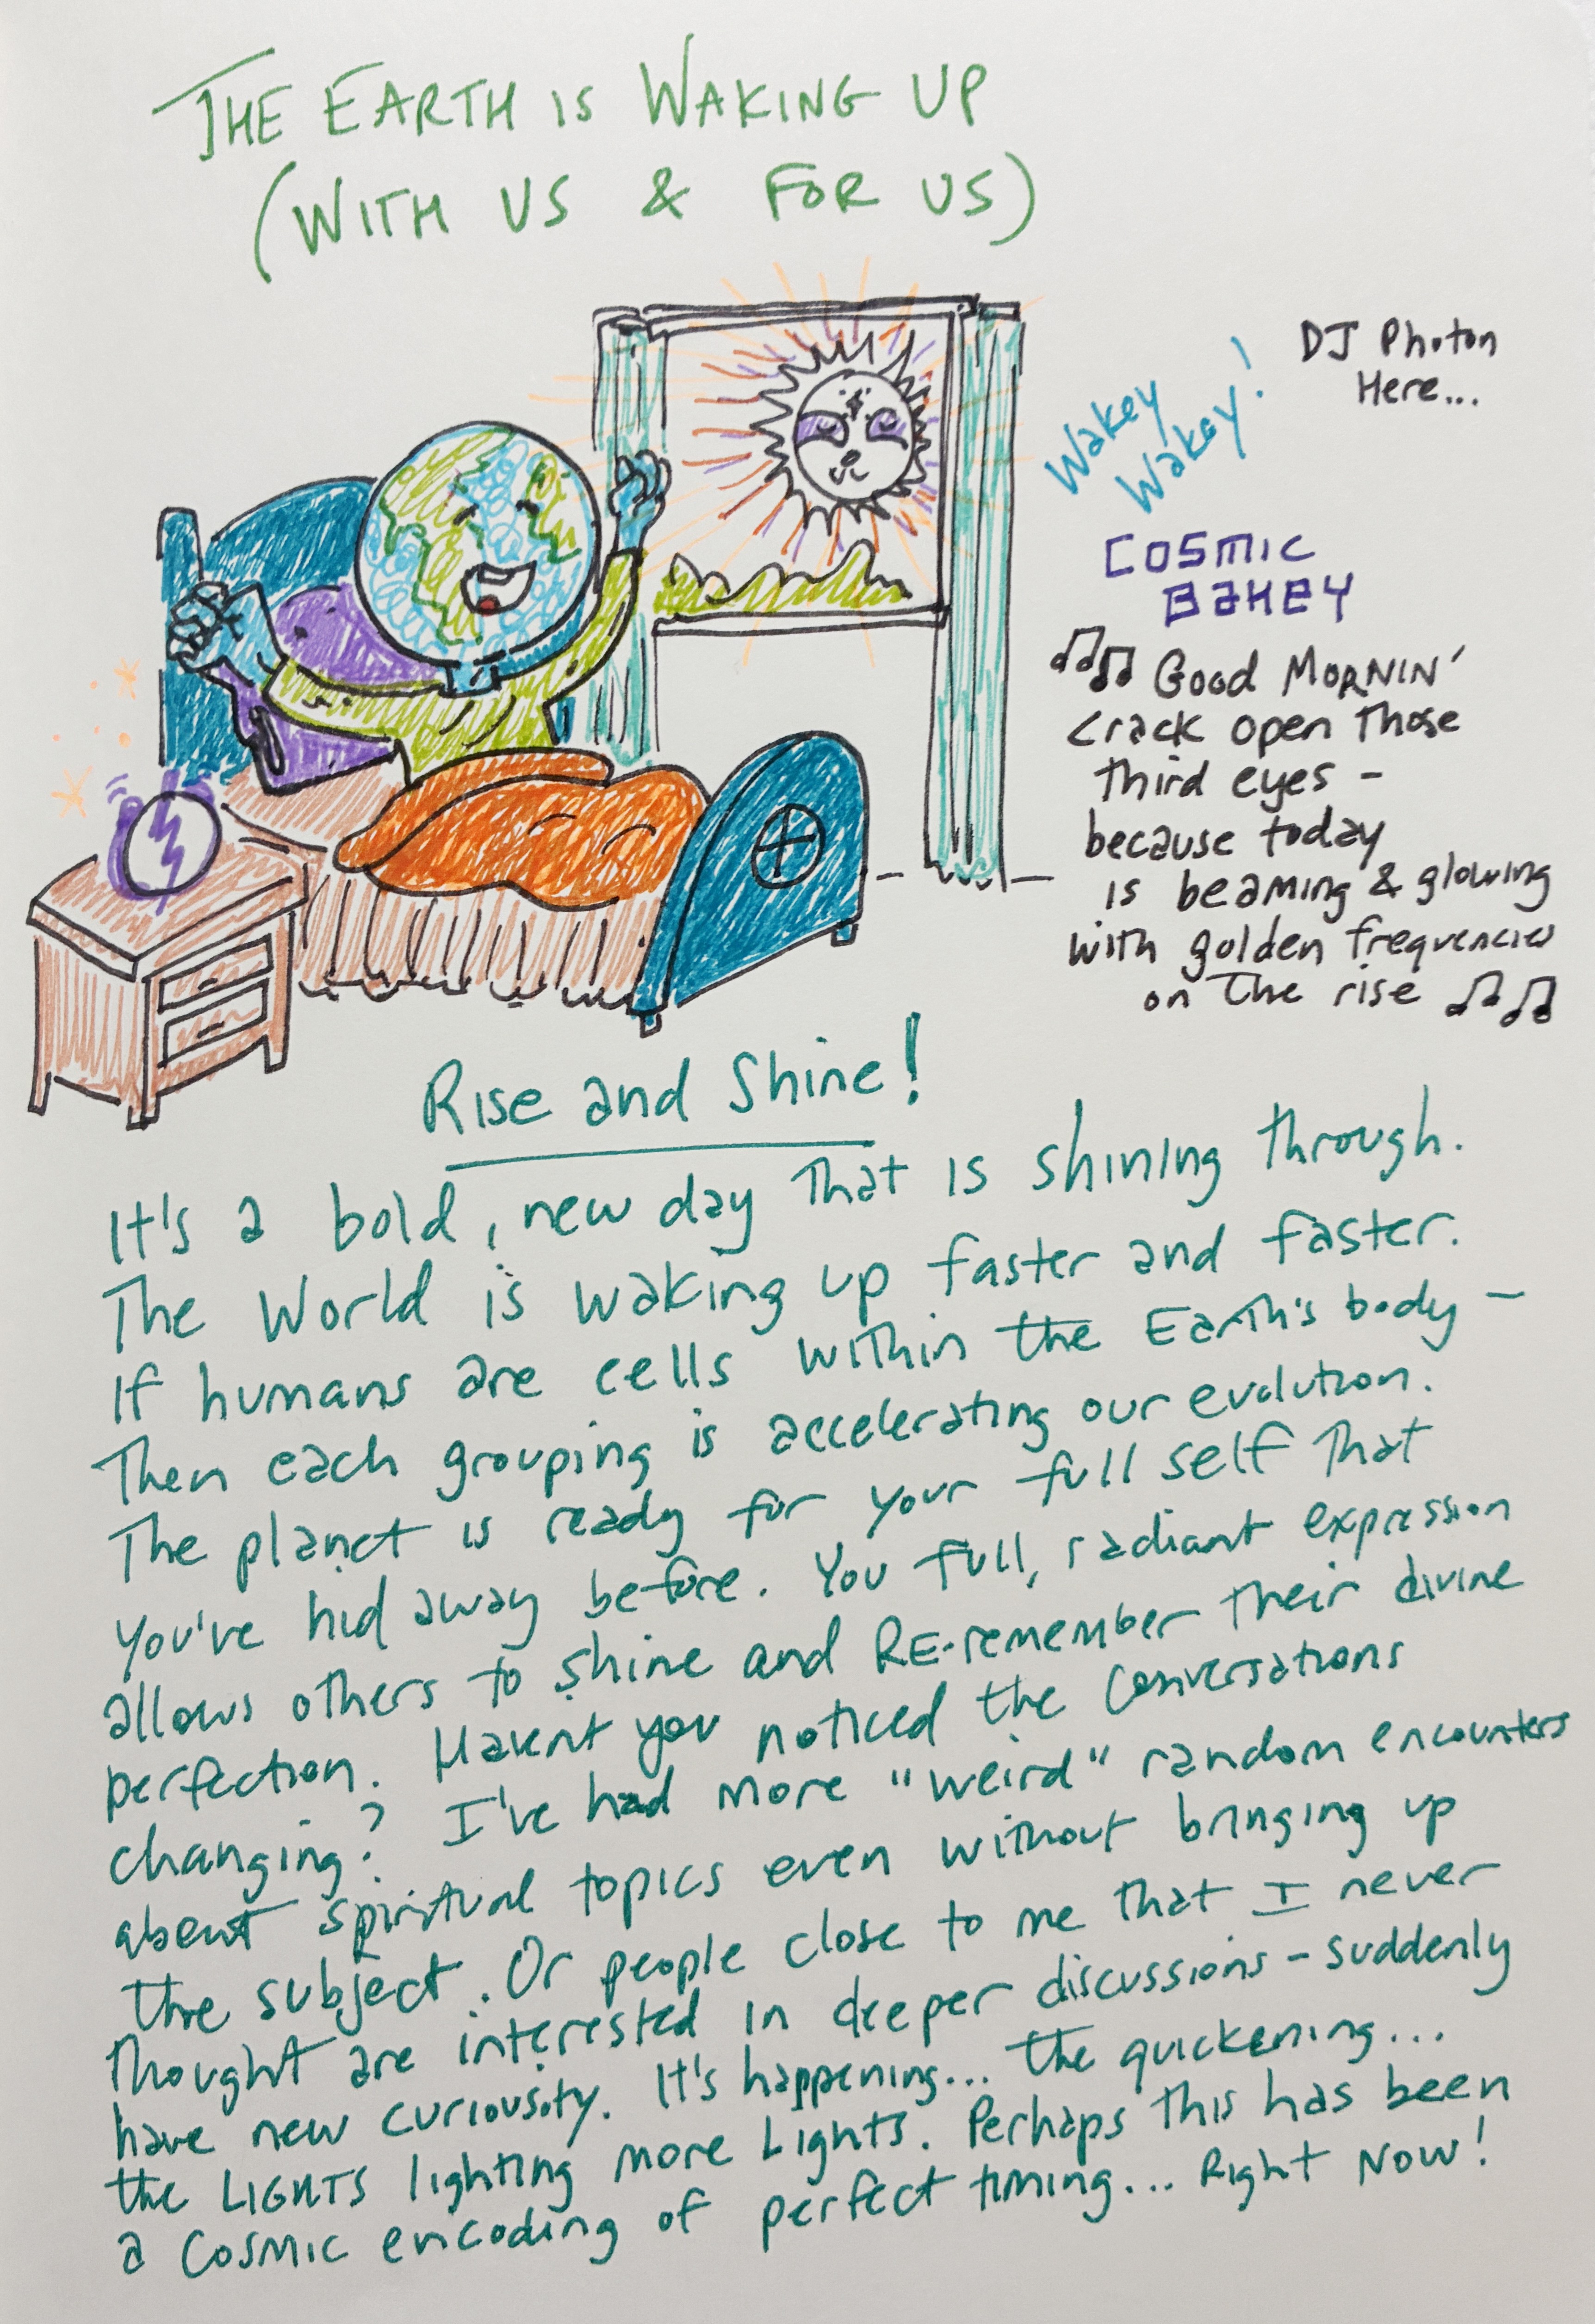 THE EARTH IS WAKING UP
(WITH US & FOR US)
DJ Photon
Here...
Wakey
Wakey!
COSMIC
BAKEY
Good MORNIN'
crack open those
third eyes -
because today
is beaming & glowing
with golden frequencies
on the rise
Rise and Shine!
It's a bold, new day that is shining through.
The World is waking up faster and faster.
If humans are cells within the Earth's body -
Then each grouping is accelerating our evolution.
The planet is ready for your full self that
you've hid away before. You full, radiant expression
allows others to shine and RE-remember their divine
perfection. Havent you noticed the conversations
changing? I've had more "weird" random encounters
about spiritual topics even without bringing up
the subject. Or people close to me that I never
thought are interested in deeper discussions - suddenly
have new curiousity. It's happening... the quickening...
the LIGHTS lighting more Lights. Perhaps this has been
a COSMIC encoding of perfect timing... Right NOW!